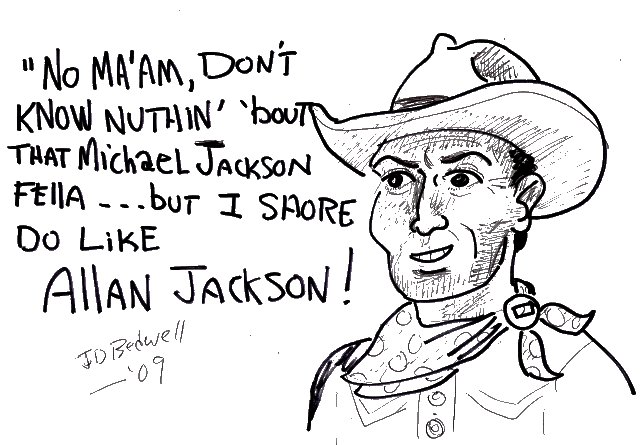 "NO MA'AM, DON'T
KNOW NUTHIN' 'bOUT
THAT MichaeL JACKSON
FEllA ---...bUT I SHORE
DO LiKE
AllAN JACKSON!
JD Bedwell
—'09